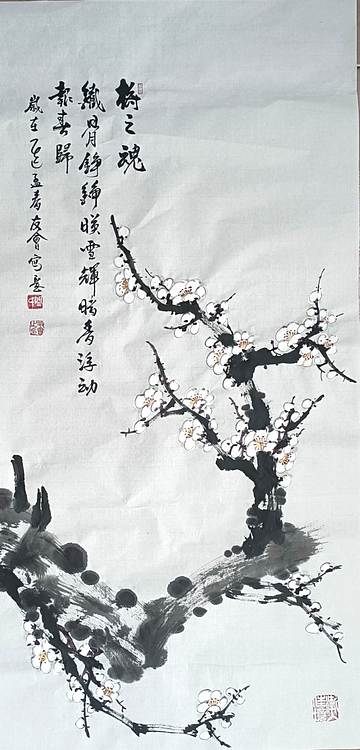 梅之魂
鐵骨錚錚映雪輝暗香浮动
報春歸
歲在乙巳孟春友會寫意